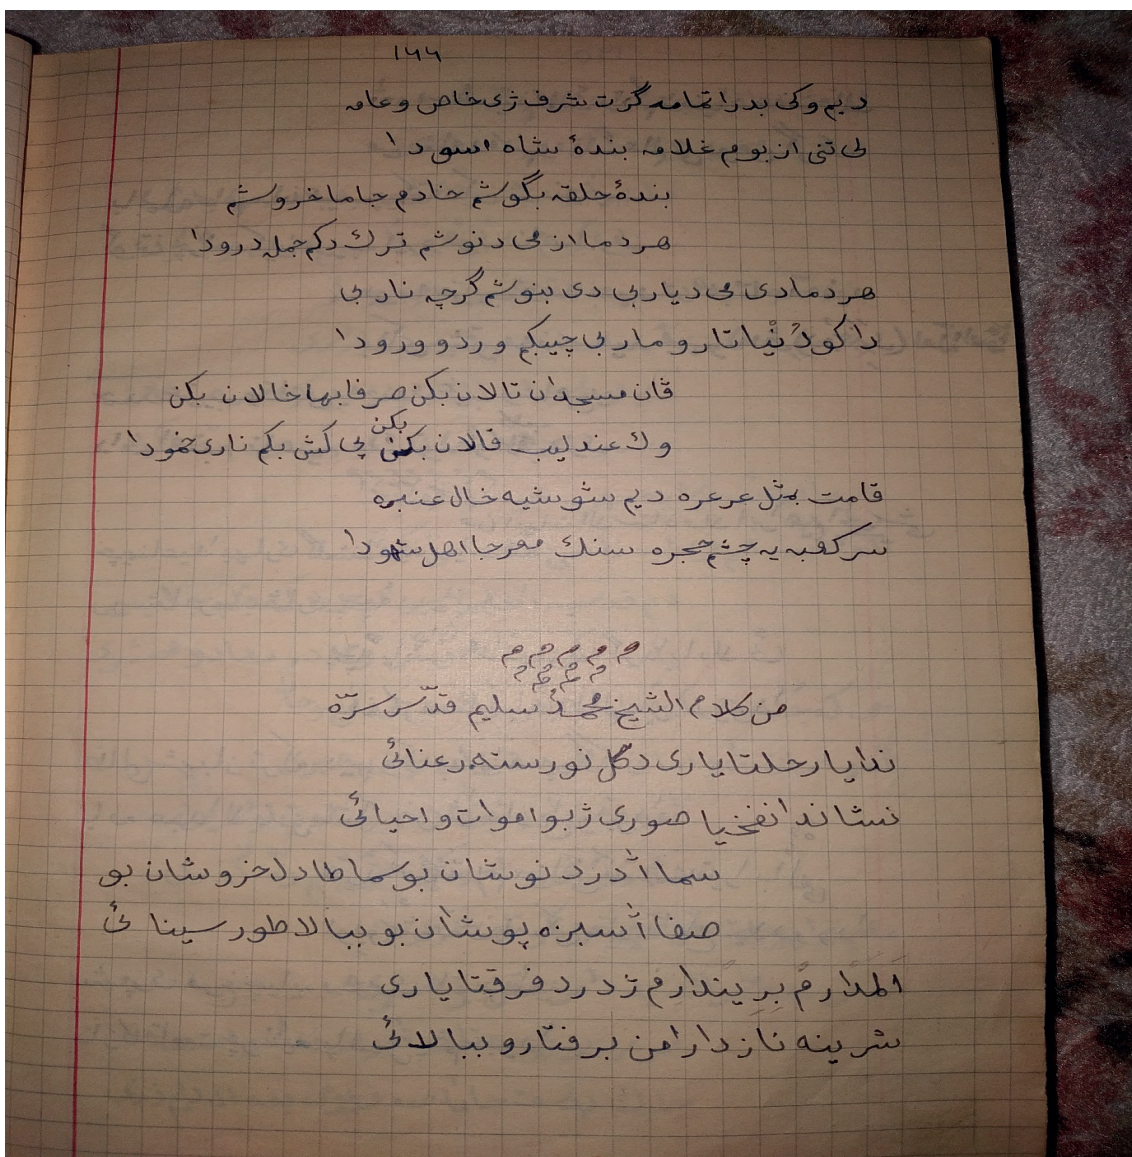 ١٤٤
ديم وكى بدرا تمامه گرت شرف ژى خاص وعامه
لى تنى از بوم غلامه بندهٔ شاه اسو دا
بندهٔ حلقه بگوشم خادم جاما خروشم
هر دما از مى دنوشم ترك دكم جمله درودا
هر دما دى مى ديار بى دى بنوشم گرچه نار بى
دا كو دُنْيا تار و مار بى چيبكم ورد و ورودا
ڤان مسجدان تالان بكن صرفا بها خالان بكن
وك عندليب قالان بكن پى كش بكم نارى خمودا
قامت بمثل عرعره ديم شوشيه خال عنبره
سر كعبه يه چشم حجره سنك معرجا اهل شهودا
من كلام الشيخ محمدُ سليم قدّس سرّه
ندا يا رحلتا يارى د گل نورسته رعنائى
نشاند انفخيا صورى ژبو اموات و احيائى
سما آ درد نوشان بو سماطا دل خروشان بو
صفا آ سبزه پوشان بو ببالا طور سينائى
اَلمَدارم بريندارم ژ درد فرقتا يارى
شرينه نازدارا من برفتار و ببالائى